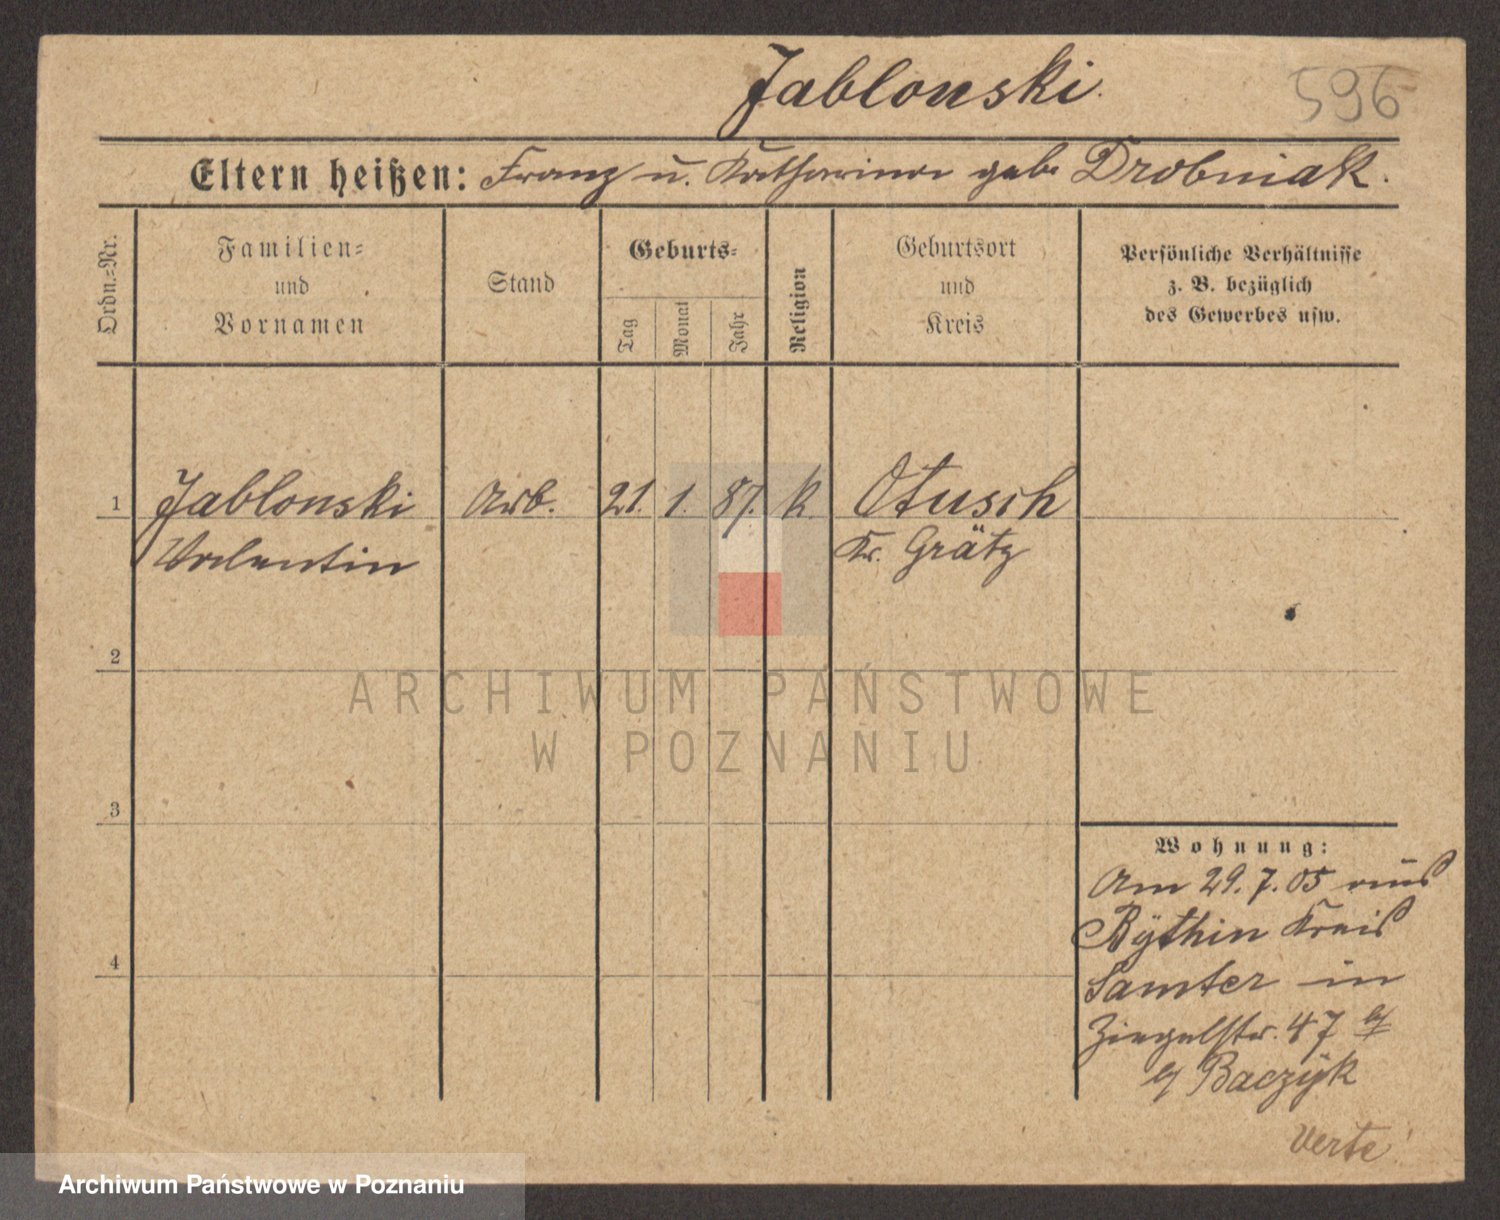 Jablonski.
596
Eltern heißen: Franz u. Katharina geb. Drobniak.
Ordn.-Nr.
Familien-
und
Vornamen
Stand
Geburts-
Tag
Monat
Jahr
Religion
Geburtsort
und
Kreis
Persönliche Verhältnisse
z. B. bezüglich
des Gewerbes usw.
1 Jablonski Arb. 21. 1. 87. k. Otusch
Valentin Kr. Grätz
2
ARCHIWUM PAŃSTWOWE
W POZNANIU
3
Wohnung:
Am 29.7.05 aus
Bythin Kreis
4
Samter in
Ziegelstr. 47
b/ Baczyk
Verte!
Archiwum Państwowe w Poznaniu